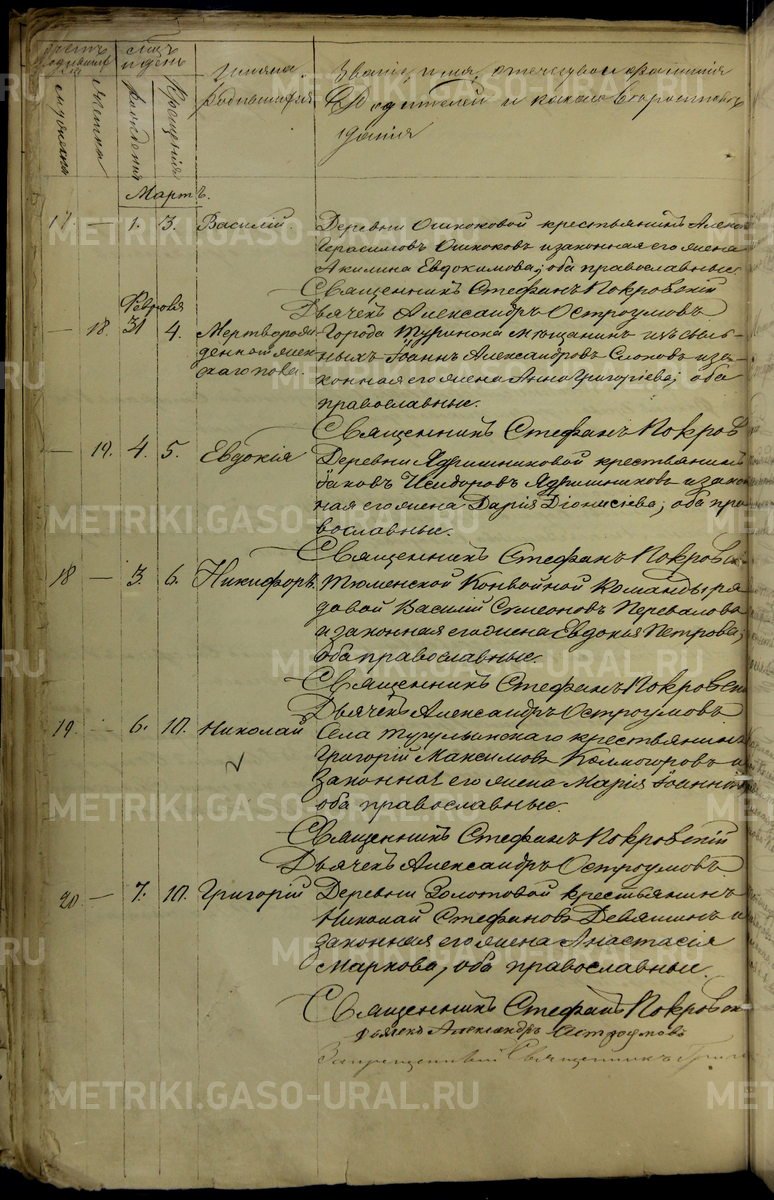 Счетъ родившихся
мужеска
женска
мѣсяцъ и день
рожденія
крещенія
Имена родившихся
Званіе, имя, отечество и фамилія
Родителей и какого вѣроисповѣ
данія
Мартъ.
17. — 1. 3. Василій. Деревни Ошкоковой крестьянинъ
Герасимовъ Ошкоковъ и законная его жена
Акилина Евдокимова; оба православные
Священникъ Стефанъ Покровскій
Дьячекъ Александръ Остроумовъ.
Февраля
— 18. 31 4. Мертворож Города Туринска мѣщанинъ изъ ссыль-
денной жен ныхъ Іоаннъ Александровъ и за-
скаго пола. конная его жена Анна Григоріева; оба
православные.
Священникъ Стефанъ Покров
— 19. 4. 5. Евдокія Деревни крестьянинъ
Іаковъ Исидоровъ и закон
ная его жена Дарія Діонисіева; оба пра
вославные.
Священникъ Стефанъ Покровск
18 — 3. 6. Никифоръ. Тюменской Конвойной Команды ря
довой Василій Симеоновъ Перевалова
и законная его жена Евдокія Петрова;
оба православные.
Священникъ Стефанъ Покровск
Дьячекъ Александръ Остроумовъ.
19. — 6. 10. Николай Села Тугулымскаго крестьянинъ
Григорій Максимовъ Колмогоровъ и
законная его жена Марія Іоаннов
оба православные.
Священникъ Стефанъ Покровскій
Дьячекъ Александръ Остроумовъ.
20 — 7. 10. Григорій Деревни Золотовой крестьянинъ
Николай Стефановъ Девятинъ и
законная его жена Анастасія
Маркова, оба православные.
Священникъ Стефанъ Покровск
Дьячекъ Александръ Остроумовъ
Священникъ
METRIKI.GASO-URAL.RU